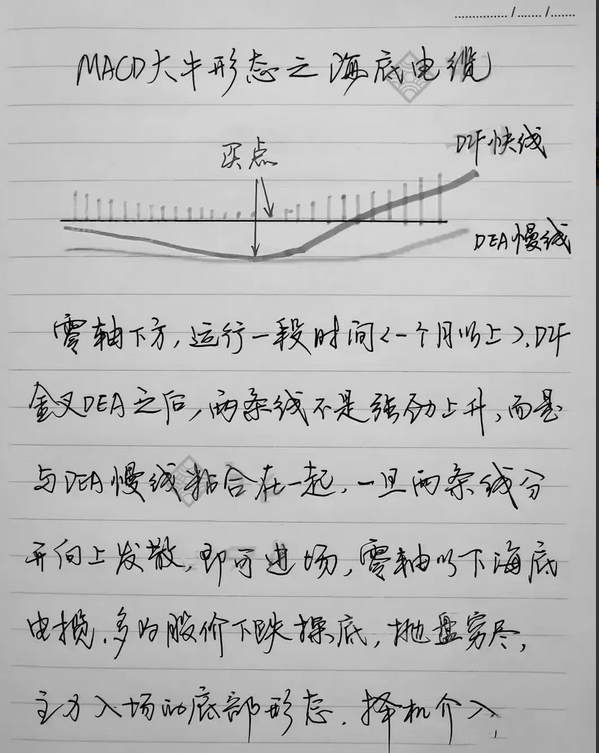 MACD大牛形态之海底电缆
买点
DIF快线
DEA慢线
零轴下方,运行一段时间<一个月以上>,DIF
金叉DEA之后,两条线不是强劲上升,而是
与DEA慢线粘合在一起,一旦两条线分
开向上发散,即可进场,零轴以下海底
电揽,多为股价下跌探底,抛盘穷尽,
主力入场的底部形态,择机介入,